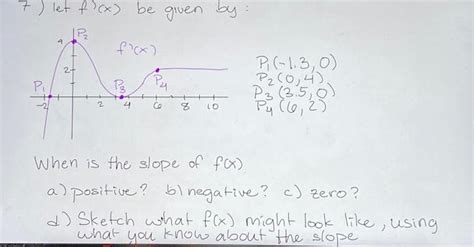 7) let f'(x) be given by:
P2
4
f'(x)
P1(-1.3, 0)
2
P2(0,4)
P1
P3
P4
P3(3.5,0)
P4(6,2)
-2
2
4
6
8
10
When is the slope of f(x)
a) positive? b) negative? c) zero?
d) Sketch what f(x) might look like, using
what you know about the slope